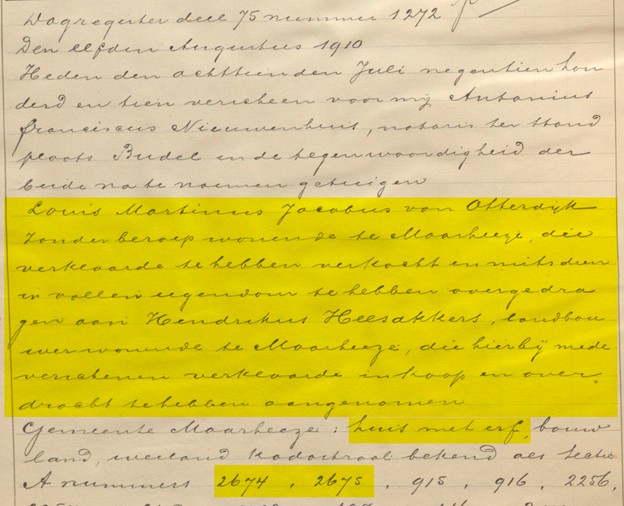 Dagregister deel 75 nummer 1272
Den elfden Augustus 1910
Heden den achttienden Juli negentienhon
derd en tien verscheen voor mij Antonius
Franciscus Nieuwenhuis, notaris ter stand
plaats Budel in de tegenwoordigheid der
beide na te noemen getuigen
Louis Martinus Jacobus van Otterdijk
zonder beroep wonende te Maarheeze, die
verklaarde te hebben verkocht en mitsdien
in vollen eigendom te hebben overgedra
gen aan Hendrikus Heesakkers, landbou
wer wonende te Maarheeze, die hierbij mede
verschenen verklaarde in koop en over
dracht te hebben aangenomen
Gemeente Maarheeze: huis met erf, bouw
land, weiland kadastraal bekend als sectie
A nummers 2674, 2675, 915, 916, 2256,